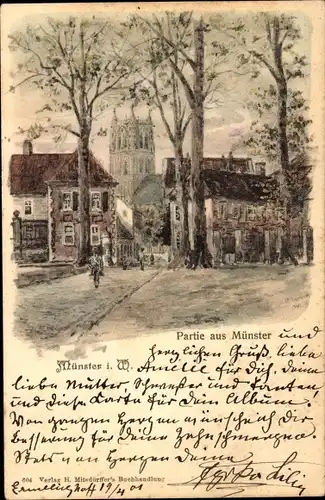 Partie aus Münster und
Münster i. W. herzlichen Gruß, liebe
Amelie für Dich, Deine
liebe Mutter, Schwester und Tanten
und diese Karte für Dein Album!
Von ganzem Herzen wünsche ich Dir
Besserung für Deine Zahnschmerzen.
Stets von Herzen Deine
Lili
604 Verlag H. Mitsdörffer's Buchhandlung
19/4 01